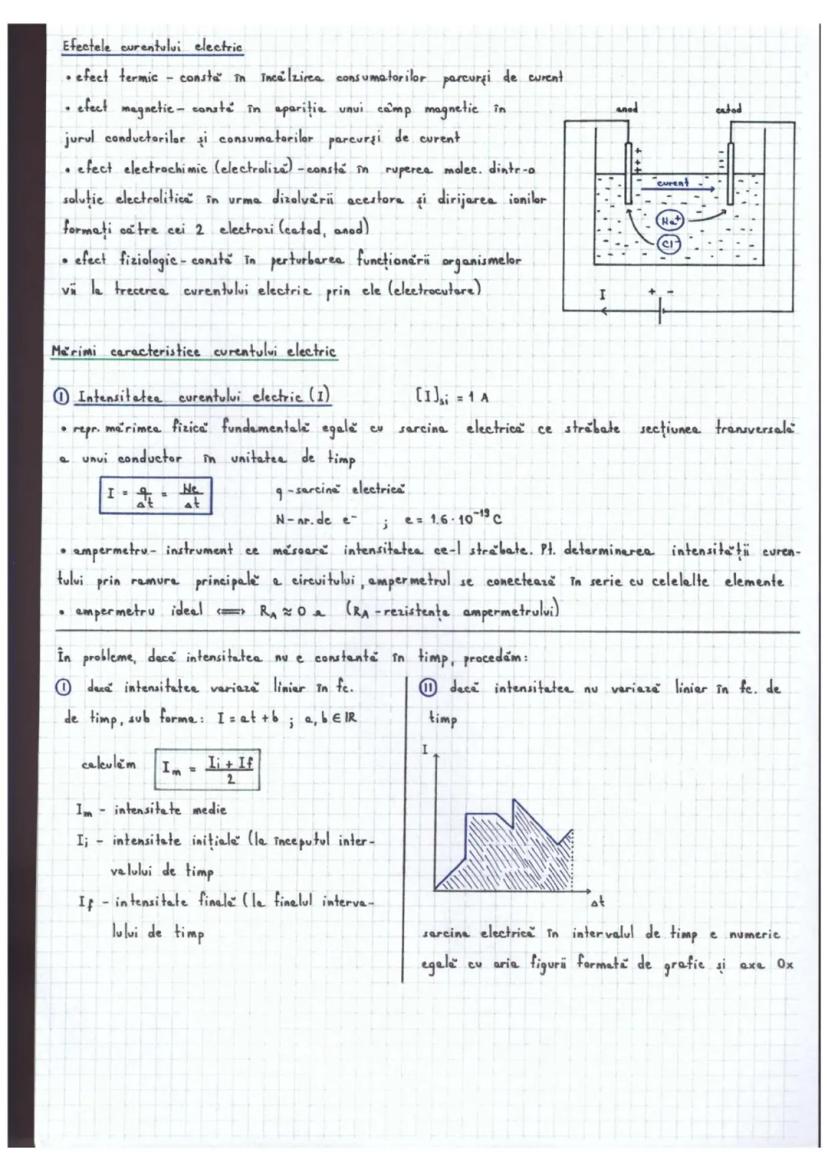 Efectele curentului electric
• efect termic - constă în încălzirea consumatorilor parcurși de curent
• efect magnetic - constă în apariția unui câmp magnetic în
jurul conductorilor și consumatorilor parcurși de curent
• efect electrochimic (electroliză) - constă în ruperea molec. dintr-o
soluție electrolitică în urma dizolvării acestora și dirijarea ionilor
formați către cei 2 electrozi (catod, anod)
• efect fiziologic - constă în perturbarea funcționării organismelor
vii la trecerea curentului electric prin ele (electrocutare)
anod catod
+ -
+ -
+ -
curent
Na⁺
Cl⁻
I + -
Mărimi caracteristice curentului electric
① Intensitatea curentului electric (I) [I]si = 1 A
• repr. mărimea fizică fundamentală egală cu sarcina electrică ce străbate secțiunea transversală
a unui conductor în unitatea de timp
I = q/Δt = Ne/Δt q - sarcină electrică
N - nr. de e⁻ ; e = 1.6 · 10⁻¹⁹ C
• ampermetru - instrument ce măsoară intensitatea ce-l străbate. Pt. determinarea intensității curen-
tului prin ramura principală a circuitului, ampermetrul se conectează în serie cu celelalte elemente
• ampermetru ideal <=> RA ≈ 0 Ω (RA - rezistența ampermetrului)
În probleme, dacă intensitatea nu e constantă în timp, procedăm:
Ⓘ dacă intensitatea variază liniar în fc.
de timp, sub forma: I = at + b ; a, b ∈ IR
calculăm Im = Ii + If / 2
Im - intensitate medie
Ii - intensitate inițială (la începutul inter-
valului de timp
If - intensitate finală (la finalul interva-
lului de timp
Ⓘⓘ dacă intensitatea nu variază liniar în fc. de
timp
I
Δt
sarcina electrică în intervalul de timp e numeric
egală cu aria figurii formată de grafic și axa Ox